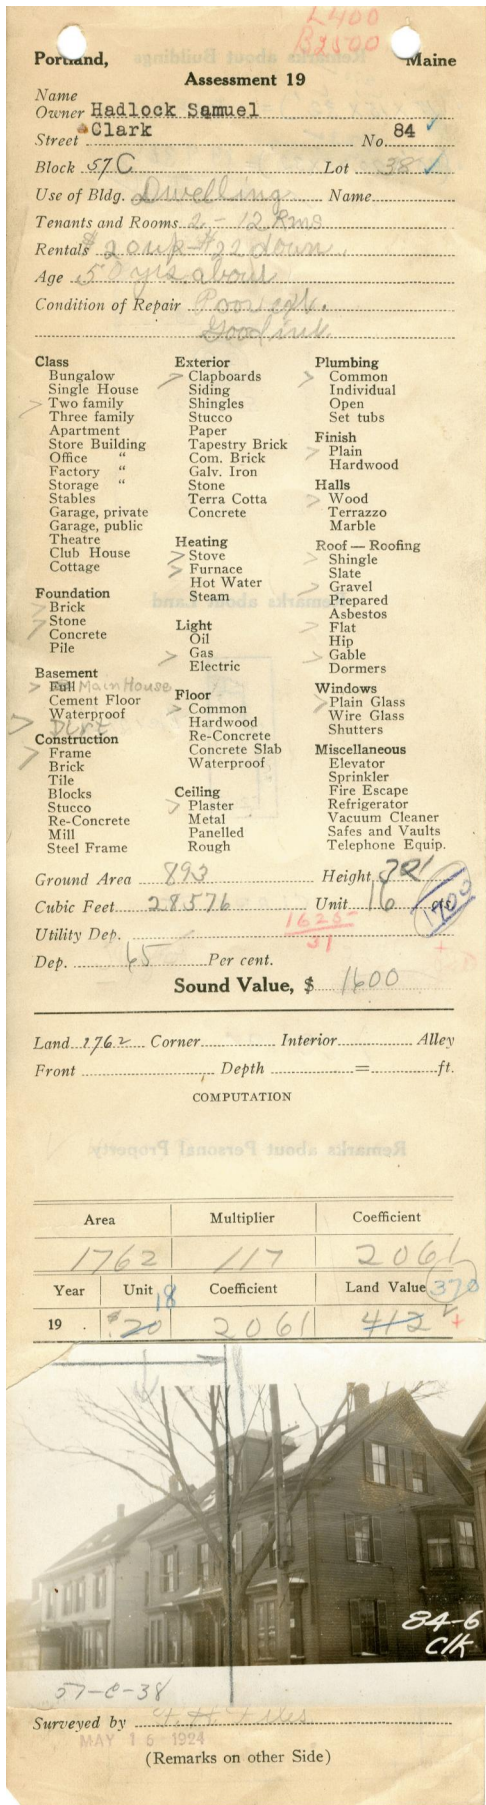 L400
B2500
Portland, Maine
Assessment 19
Name
Owner Hadlock Samuel
Street Clark No. 84 ✓
Block 57 C Lot 38 ✓
Use of Bldg. Dwelling Name
Tenants and Rooms 2 - 12 Rms
Rentals $20 up - $22 down
Age 50 yrs about
Condition of Repair Poor ext.
Good int.
Class
Bungalow
Single House
Two family
Three family
Apartment
Store Building
Office "
Factory "
Storage "
Stables
Garage, private
Garage, public
Theatre
Club House
Cottage
Foundation
Brick
Stone
Concrete
Pile
Basement
Full Main House
Cement Floor
Waterproof
Dirt
Construction
Frame
Brick
Tile
Blocks
Stucco
Re-Concrete
Mill
Steel Frame
Exterior
Clapboards
Siding
Shingles
Stucco
Paper
Tapestry Brick
Com. Brick
Galv. Iron
Stone
Terra Cotta
Concrete
Heating
Stove
Furnace
Hot Water
Steam
Light
Oil
Gas
Electric
Floor
Common
Hardwood
Re-Concrete
Concrete Slab
Waterproof
Ceiling
Plaster
Metal
Panelled
Rough
Plumbing
Common
Individual
Open
Set tubs
Finish
Plain
Hardwood
Halls
Wood
Terrazzo
Marble
Roof — Roofing
Shingle
Slate
Gravel
Prepared
Asbestos
Flat
Hip
Gable
Dormers
Windows
Plain Glass
Wire Glass
Shutters
Miscellaneous
Elevator
Sprinkler
Fire Escape
Refrigerator
Vacuum Cleaner
Safes and Vaults
Telephone Equip.
Ground Area 893 Height 32'
Cubic Feet 28576 Unit 16
1900
Utility Dep. 1625
31
Dep. 65 Per cent.
Sound Value, $ 1600
Land 1762 Corner Interior Alley
Front Depth = ft.
COMPUTATION
Area Multiplier Coefficient
1762 117 2061
Year Unit Coefficient Land Value 370
18
19 $20 2061 412
84-6
Clk
57-C-38
Surveyed by F. H. Files
MAY 15 1924
(Remarks on other Side)